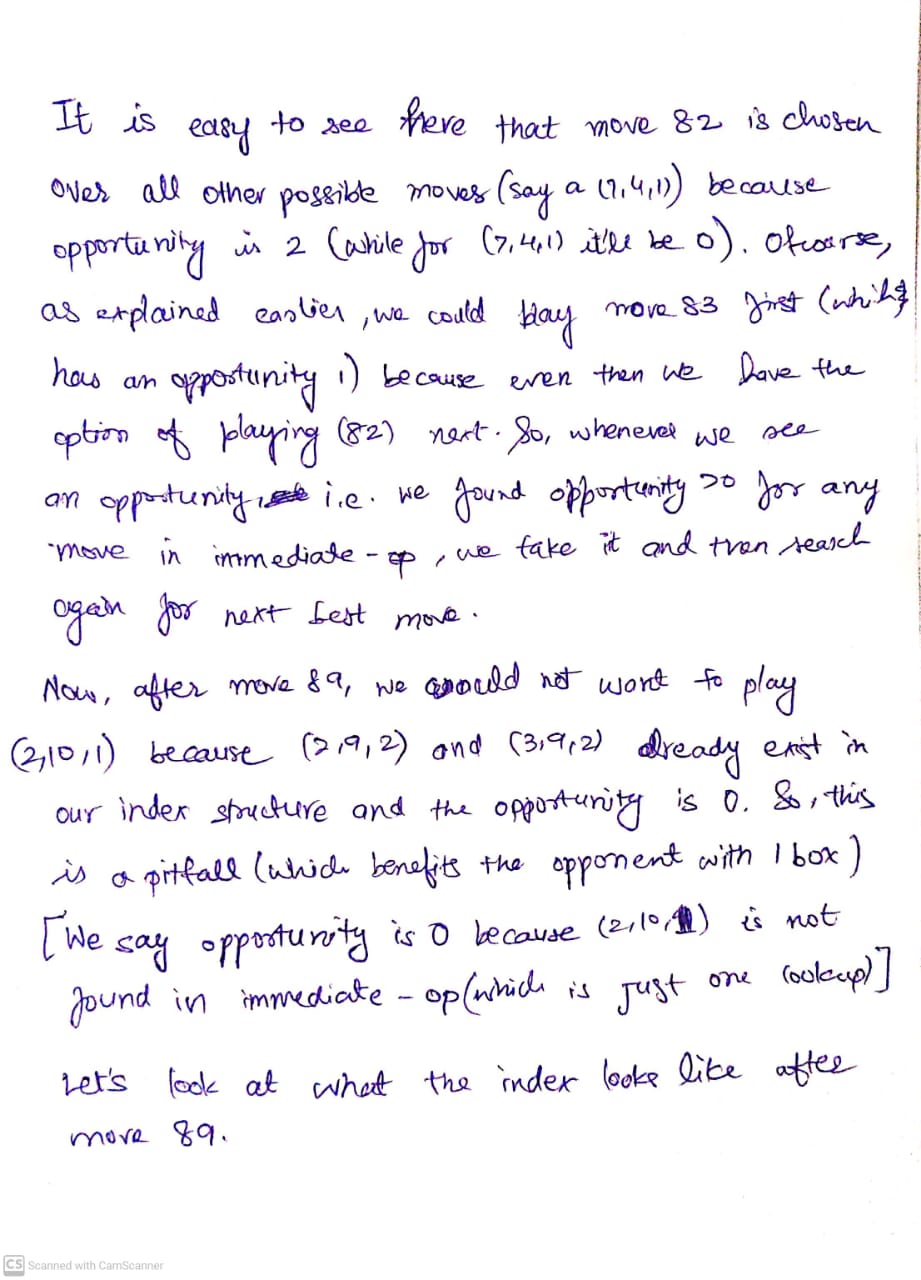 It is easy to see here that move 82 is chosen
over all other possible moves (say a (7,4,1)) because
opportunity is 2 (while for (7,4,1) it'll be 0). Ofcourse,
as explained earlier, we could play move 83 first (which
has an opportunity 1) because even then we have the
option of playing (82) next. So, whenever we see
an opportunity, i.e. we found opportunity >0 for any
move in immediate-op, we take it and then search
again for next best move.
Now, after move 89, we would not want to play
(2,10,1) because (2,9,2) and (3,9,2) already exist in
our index structure and the opportunity is 0. So, this
is a pitfall (which benefits the opponent with 1 box)
[We say opportunity is 0 because (2,10,1) is not
found in immediate-op (which is just one lookup)]
Let's look at what the index looks like after
move 89.
CS Scanned with CamScanner